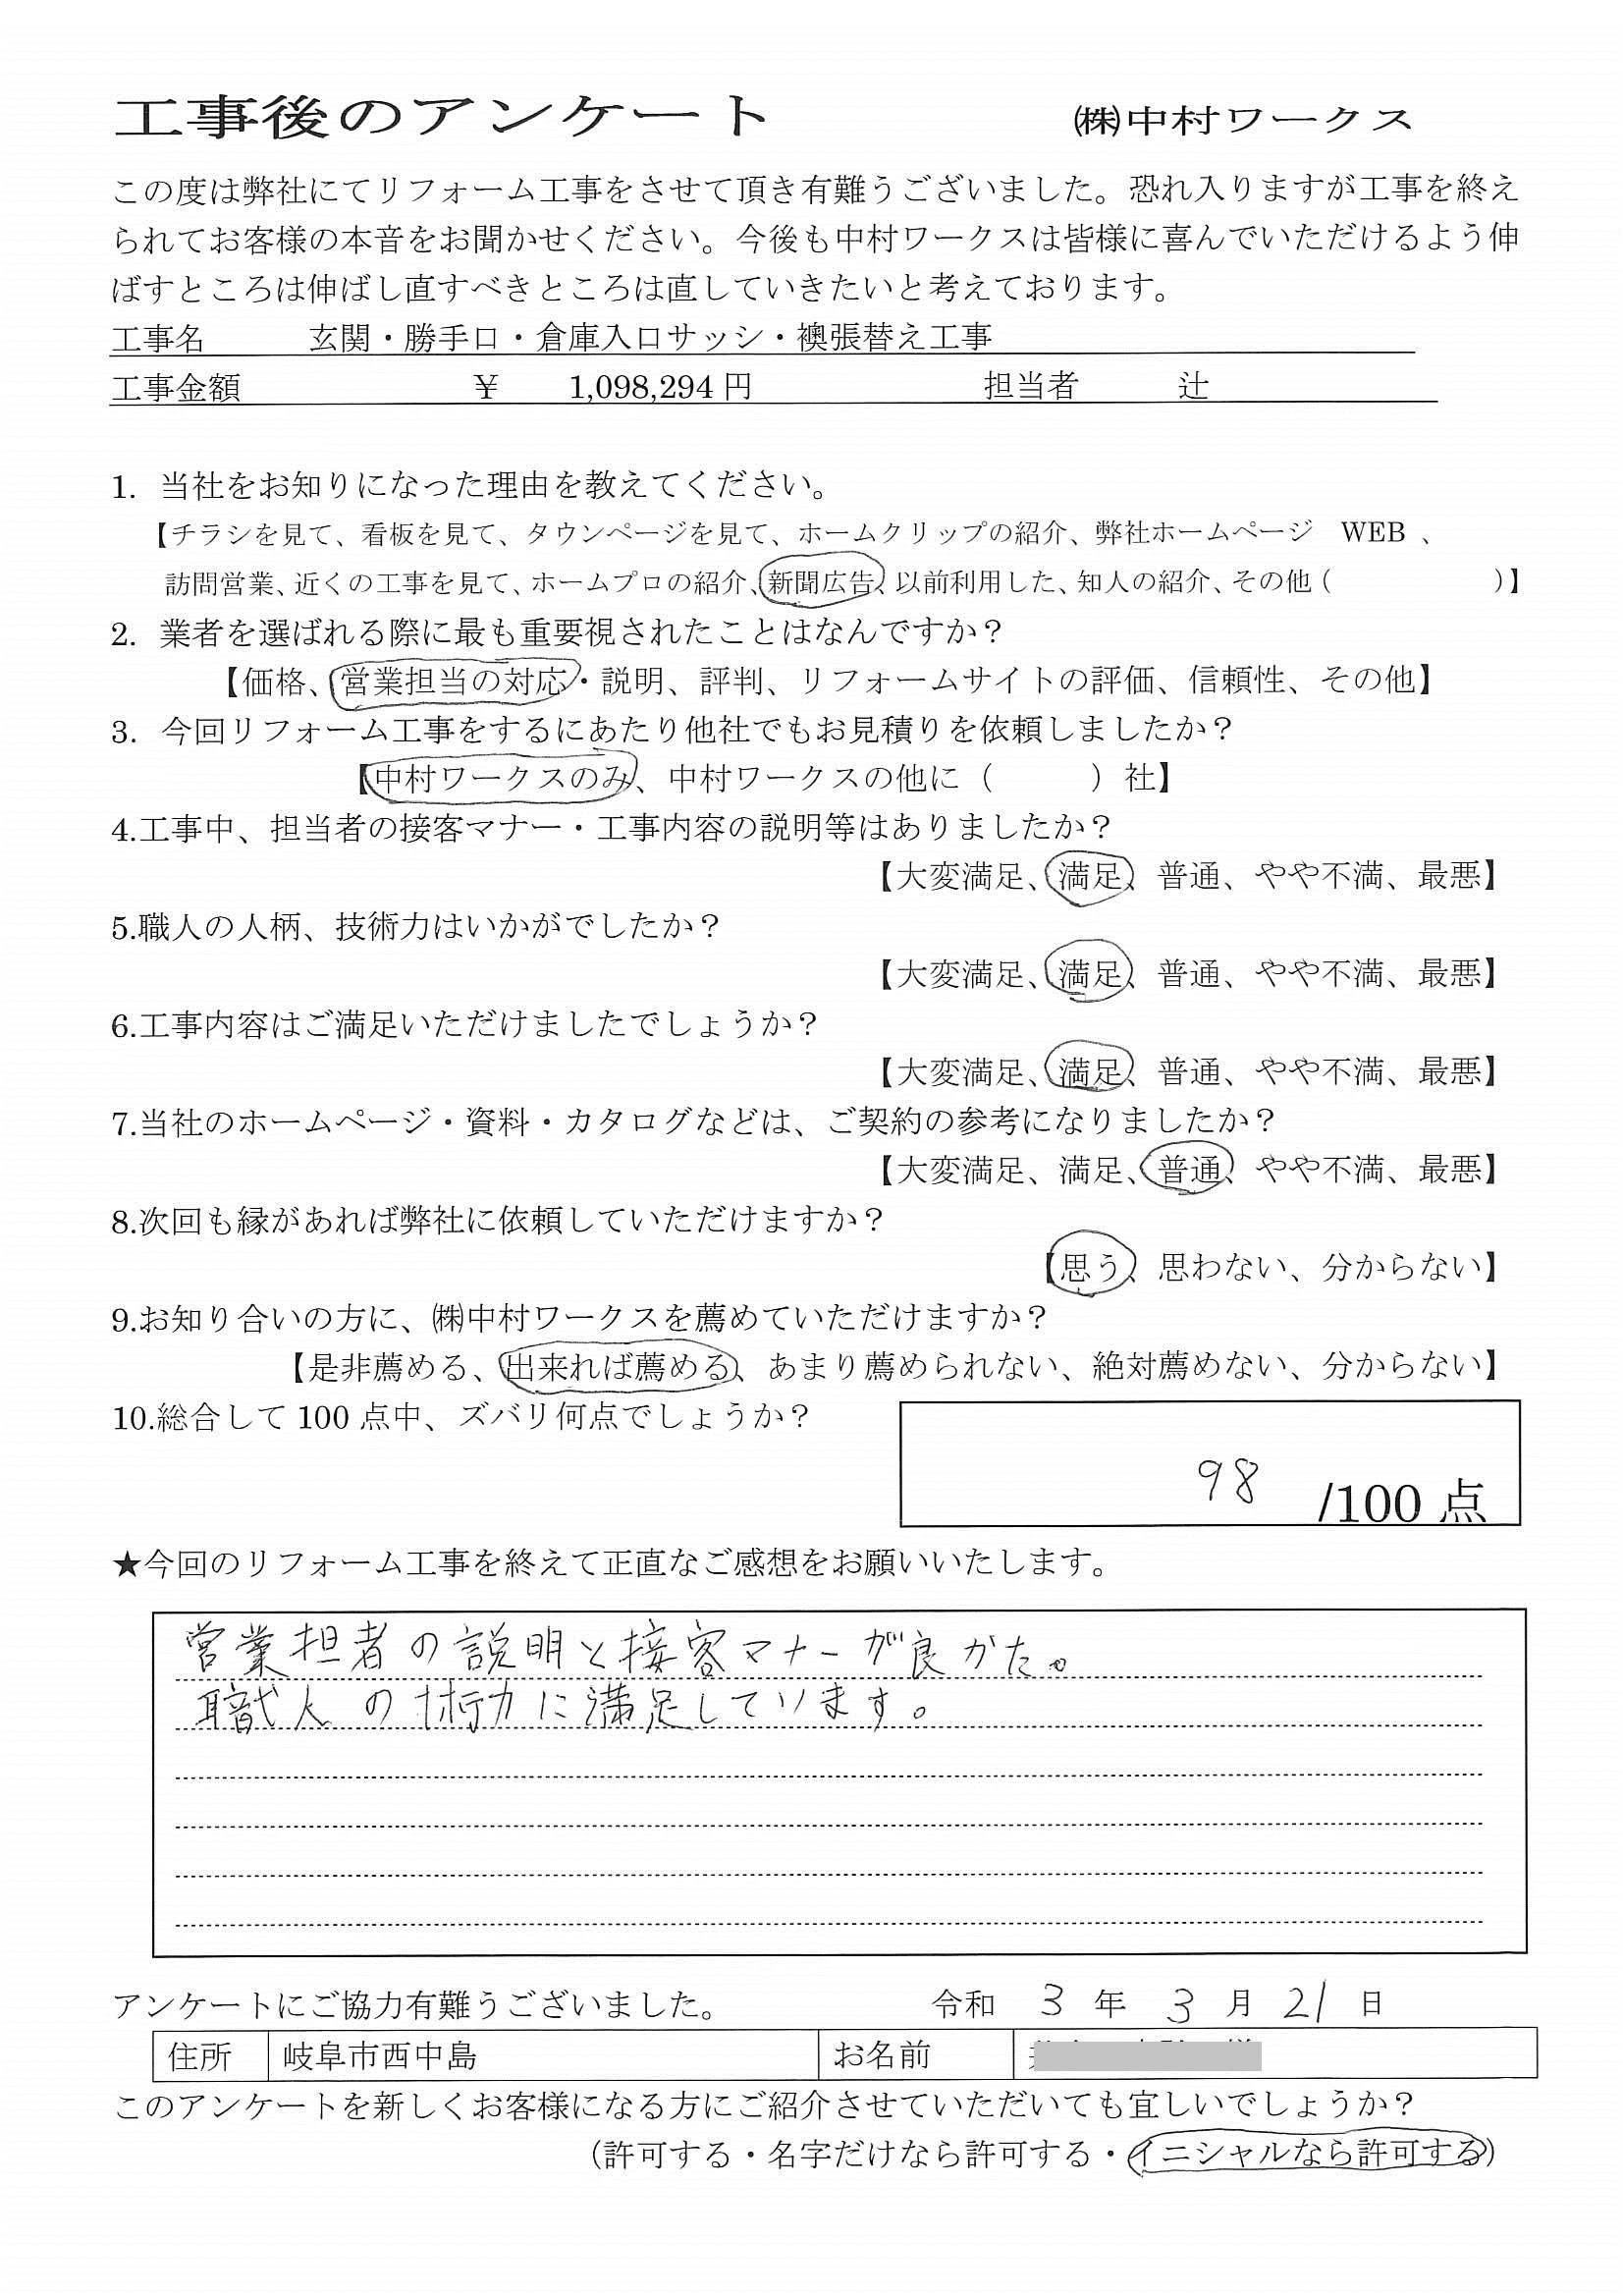 工事後のアンケート　㈱中村ワークス
この度は弊社にてリフォーム工事をさせて頂き有難うございました。恐れ入りますが工事を終え
られてお客様の本音をお聞かせください。今後も中村ワークスは皆様に喜んでいただけるよう伸
ばすところは伸ばし直すべきところは直していきたいと考えております。
工事名　玄関・勝手口・倉庫入口サッシ・襖張替え工事
工事金額　￥　1,098,294 円　担当者　辻
1. 当社をお知りになった理由を教えてください。
【チラシを見て、看板を見て、タウンページを見て、ホームクリップの紹介、弊社ホームページ　WEB 、
訪問営業、近くの工事を見て、ホームプロの紹介、新聞広告、以前利用した、知人の紹介、その他（　　　　　）】
2. 業者を選ばれる際に最も重要視されたことはなんですか？
【価格、営業担当の対応・説明、評判、リフォームサイトの評価、信頼性、その他】
3. 今回リフォーム工事をするにあたり他社でもお見積りを依頼しましたか？
【中村ワークスのみ、中村ワークスの他に（　　　）社】
4.工事中、担当者の接客マナー・工事内容の説明等はありましたか？
【大変満足、満足、普通、やや不満、最悪】
5.職人の人柄、技術力はいかがでしたか？
【大変満足、満足、普通、やや不満、最悪】
6.工事内容はご満足いただけましたでしょうか？
【大変満足、満足、普通、やや不満、最悪】
7.当社のホームページ・資料・カタログなどは、ご契約の参考になりましたか？
【大変満足、満足、普通、やや不満、最悪】
8.次回も縁があれば弊社に依頼していただけますか？
【思う、思わない、分からない】
9.お知り合いの方に、㈱中村ワークスを薦めていただけますか？
【是非薦める、出来れば薦める、あまり薦められない、絶対薦めない、分からない】
10.総合して 100 点中、ズバリ何点でしょうか？
98 /100 点
★今回のリフォーム工事を終えて正直なご感想をお願いいたします。
営業担者の説明と接客マナーが良かた。
職人の術力に満足しています。
アンケートにご協力有難うございました。　令和 3 年 3 月 21 日
住所　岐阜市西中島　お名前
このアンケートを新しくお客様になる方にご紹介させていただいても宜しいでしょうか？
（許可する・名字だけなら許可する・イニシャルなら許可する）